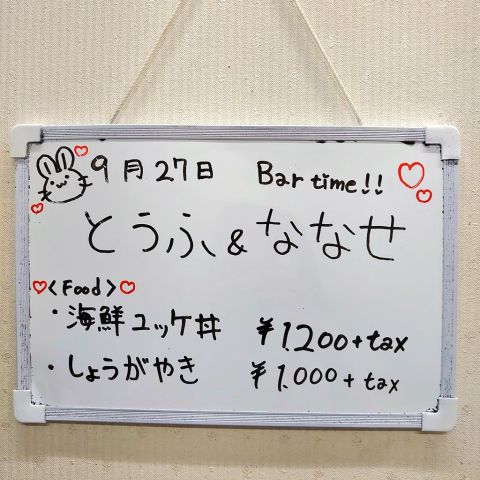 9月27日 Bar time!!
とうふ&ななせ
<Food>
・海鮮ユッケ丼 ¥1.200+tax
・しょうがやき ¥1.000+tax